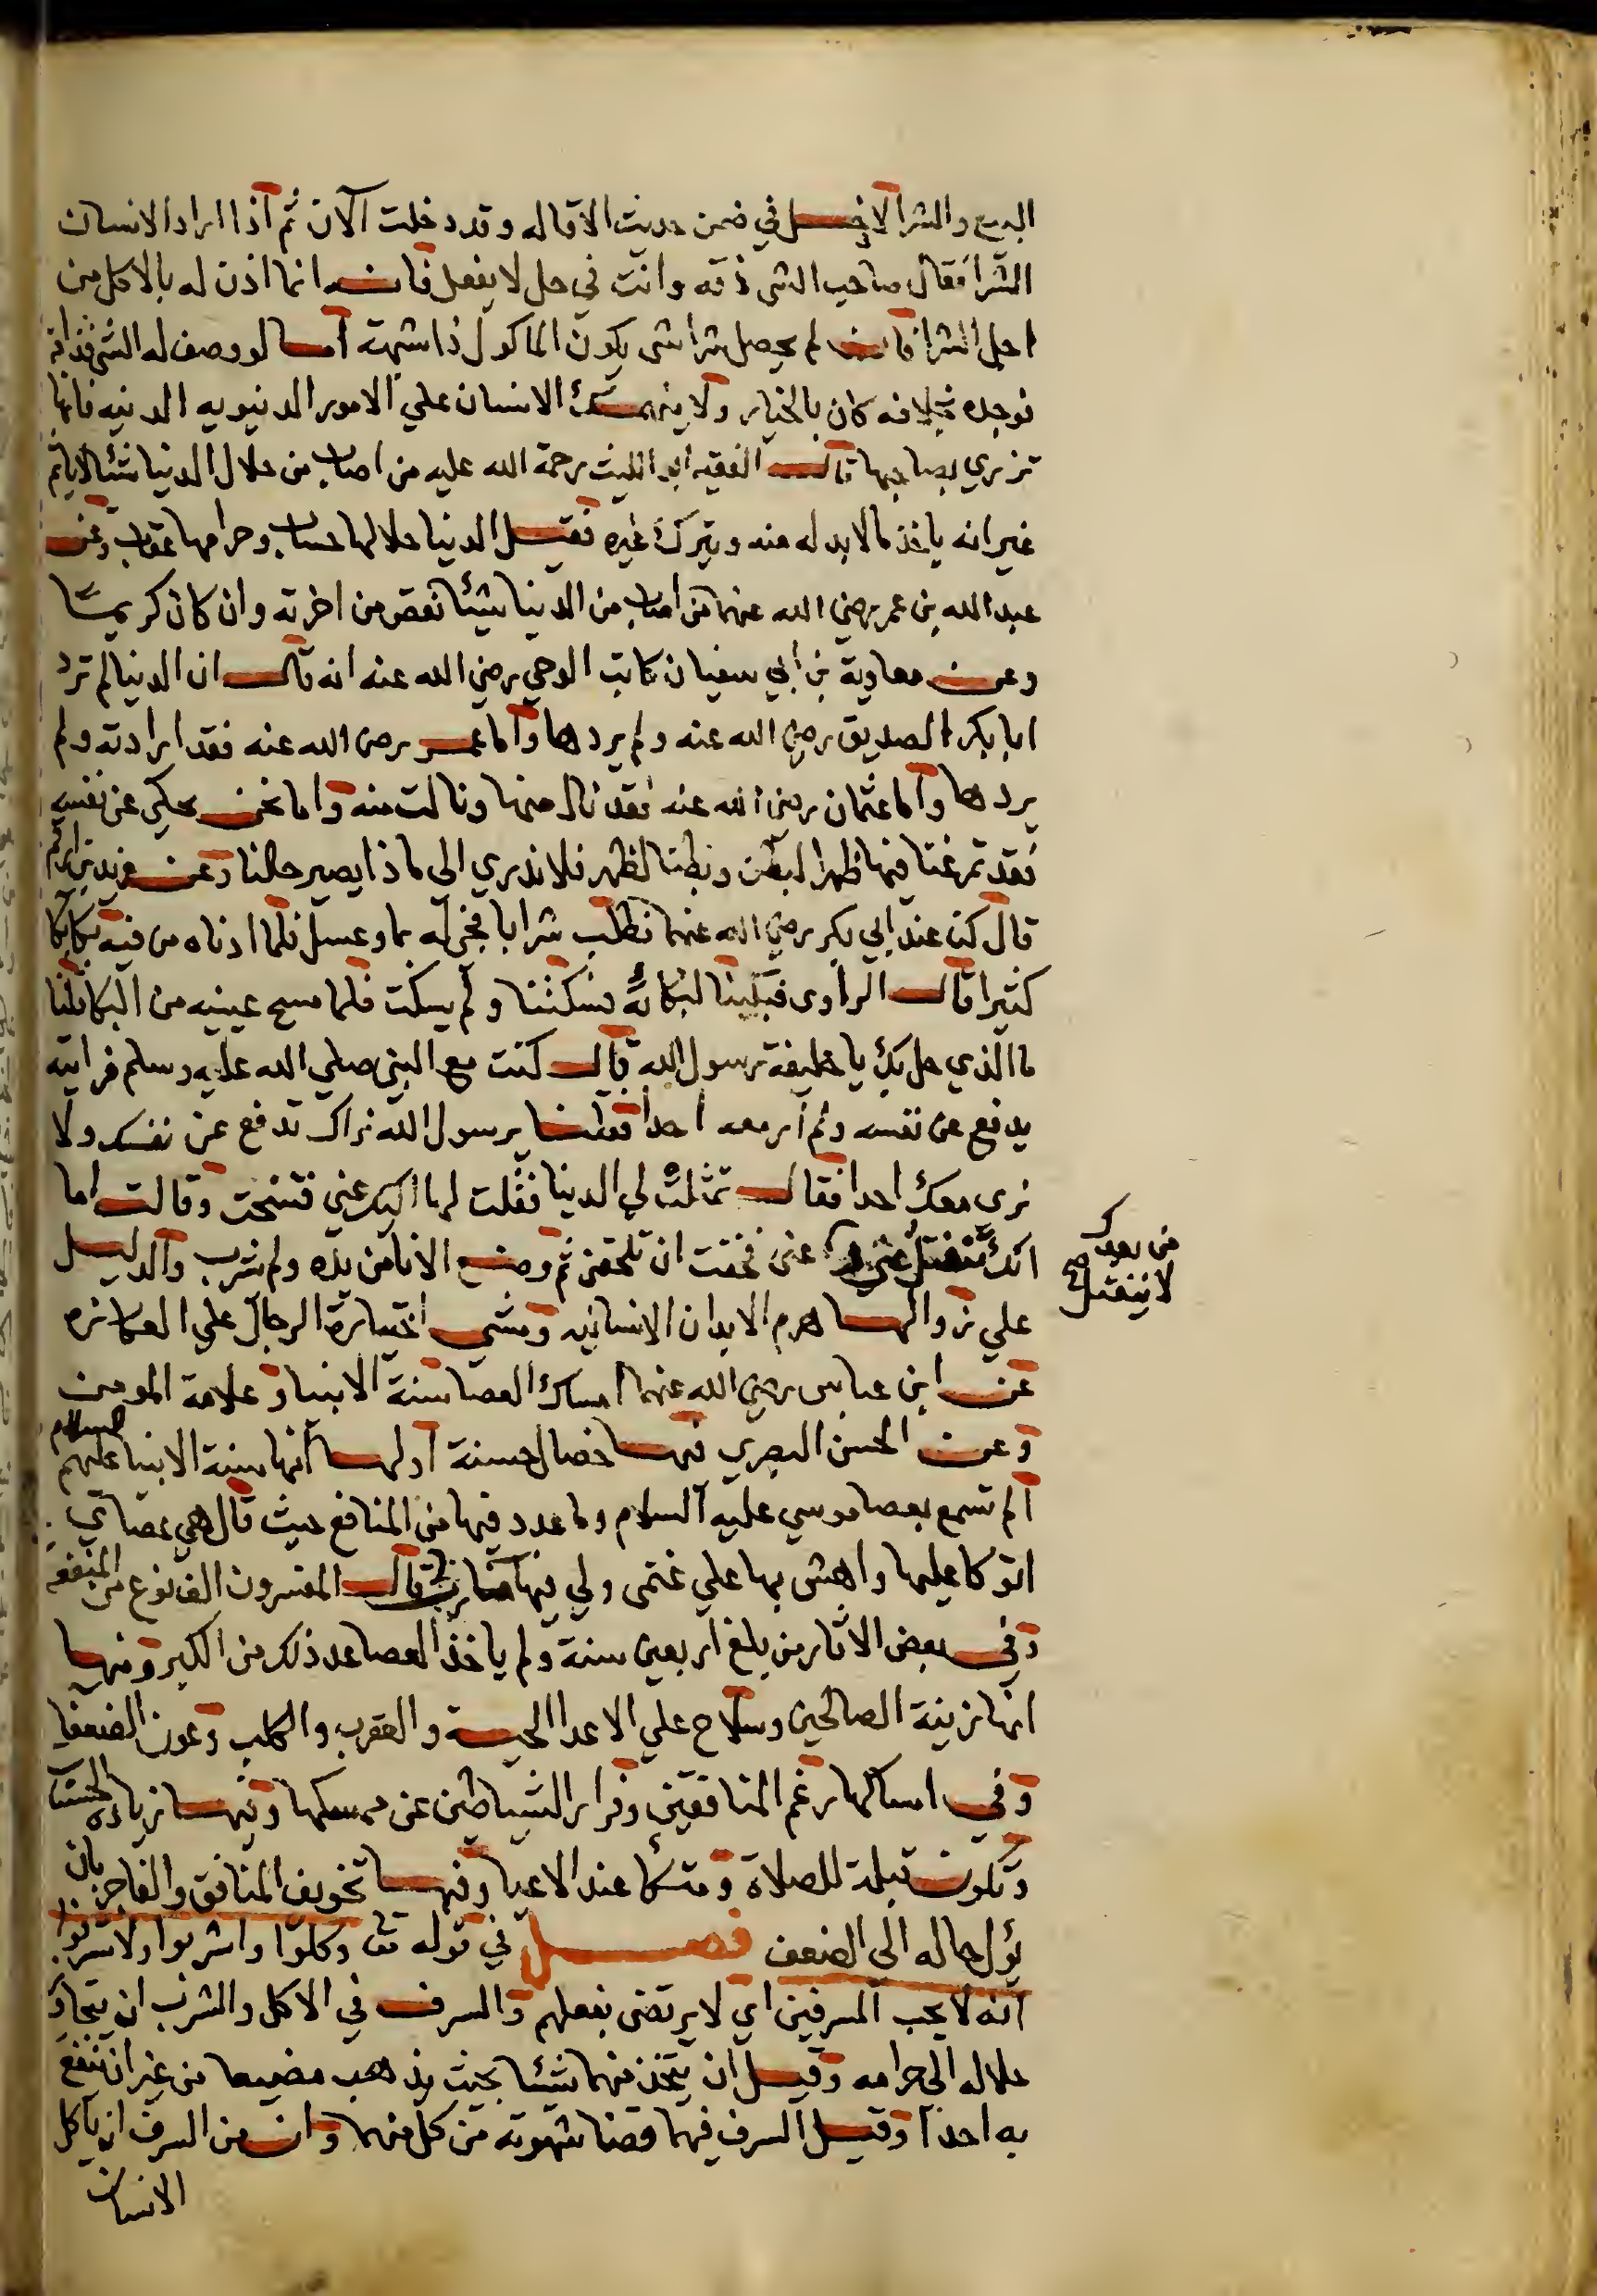 البيع والشرا لاخـل في ضمن حديث الاقاله وقد دخلت الآن ثم اذا اراد الانسان
الشرا فقال صاحب الشى ذقه وانت في حل لا يفعل فانـه انما اذن له بالاكل من
اجل الشرا فان لم يحصل شرا شى يكون الماكول ذا شبهة اما لو وصف له الشى فذاقه
فوجده بخلافه كان بالخيار ولا ينهمك الانسان علي الامور الدنيويه الدنيه فانها
تزري بصاحبها قال الفقيه ابو الليث رحمة الله عليه من اصاب من حلال الدنيا شئا لا ياثم
غير انه ياخذ ما لابد له منه ويترك غيره فقيل الدنيا حلالها حساب وحرامها عقاب وعن
عبد الله بن عمر رضي الله عنهما من اصاب من الدنيا شئا نقص من اخرته وان كان كريمـا
وعن معاوية بن ابي سفيان كاتب الوحي رضي الله عنه انه قال ان الدنيا لم ترد
ابا بكر الصديق رضي الله عنه ولم يردها واما عمر رضي الله عنه فقد ارادته ولم
يردها واما عثمان رضي الله عنه فقد نال منها ونالت منه واما نحن يحكي عن نفسه
فقد تمرغنا فيها ظهرا لبطن وبطنا لظهر فلا ندري الى ماذا يصير حالنا وعن زيد بن ارقم
قال كنا عند ابي بكر رضي الله عنهما فطلب شرابا فجئ له بما وعسل فلما ادناه من فيه بكا بكا
كثيرا قال الراوى فبكينا لبكائه فسكتنا ولم يسكت فلما مسح عينيه من البكا قلنا
ما الذي حل بك يا خليفة رسول الله قال كنت مع النبى صلي الله عليه وسلم فرايته
يدفع عن نفسه ولم ار معه احدا فقلنا يرسول الله نراك تدفع عن نفسك ولا
نرى معك احدا فقال تمثلت لي الدنيا فقلت لها اليك عني فتنحت وقالت اما
انك تنفتل عنى فخفت ان تلحقنى ثم وضع الانا من يده ولم يشرب والدليل
من بعدك
لا ينفتل صح
علي زوالها هرم الابدان الانسانيه ومشى اختيارة الرجال علي العكازه
عن ابن عباس رضي الله عنهما امساك العصا سنة الانبيا وعلامة المومن
وعن الحسن البصري فيها خصال حسنة اولها انها سنة الانبيا عليهم السلام
الم تسمع بعصا موسي عليه السلام وما عدد فيها من المنافع حيث قال هي عصاي
اتوكا عليها واهش بها علي غنمى ولي فيها مآرب قال المفسرون الف نوع من المنفعه
وفي بعض الاثار من بلغ اربعين سنة ولم ياخذ العصا عد ذلك من الكبر ومنها
انها زينة الصالحين وسلاح علي الاعدا الحيـة والعقرب والكلب وعون الضعفا
وفي امساكها رغم المنافقين وفرار الشياطين عن ممسكها وفيها زيادة الحسنات
وتكون قبلة للصلاة ومتكأ عند الاعيا وفيها تخويف المنافق والفاجر بان
يؤل حاله الى الضعف فصـل في قوله تعا وكلوا واشربوا ولا تسرفوا
انه لا يحب المسرفين اي لا يرتضى بفعلهم والسرف في الاكل والشرب ان يتجاوز
حلاله الي حرامه وقيل ان يتخذ منهما شئا بحيث يذهب مضيعا من غير ان ينتفع
به احدا وقيل السرف فيهما قضا شهوته من كل منهما وان من السرف ان ياكل
الانسان